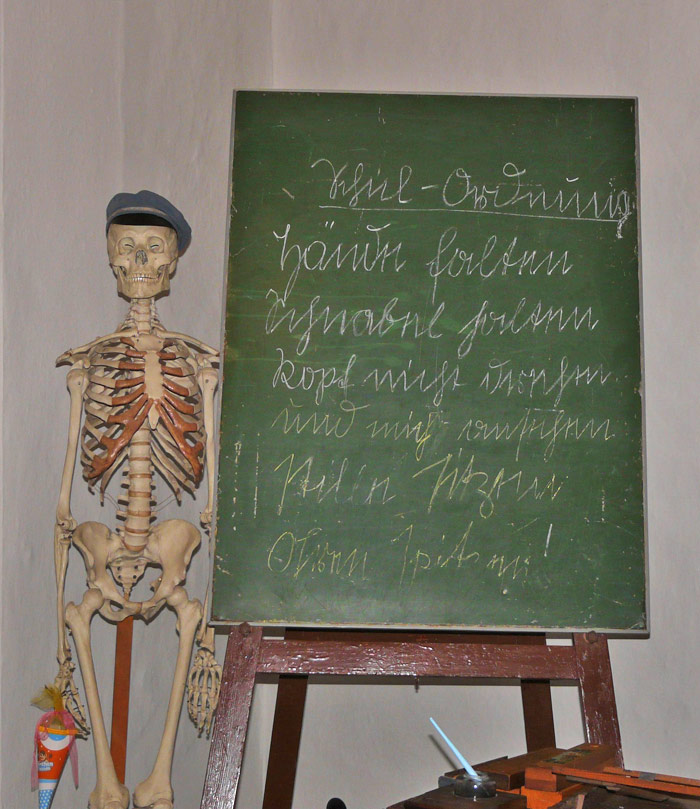 Schul-Ordnung
Hände falten
Schnabel halten
Kopf nicht drehen
und mich ansehen
Stille sitzen
Ohren spitzen!